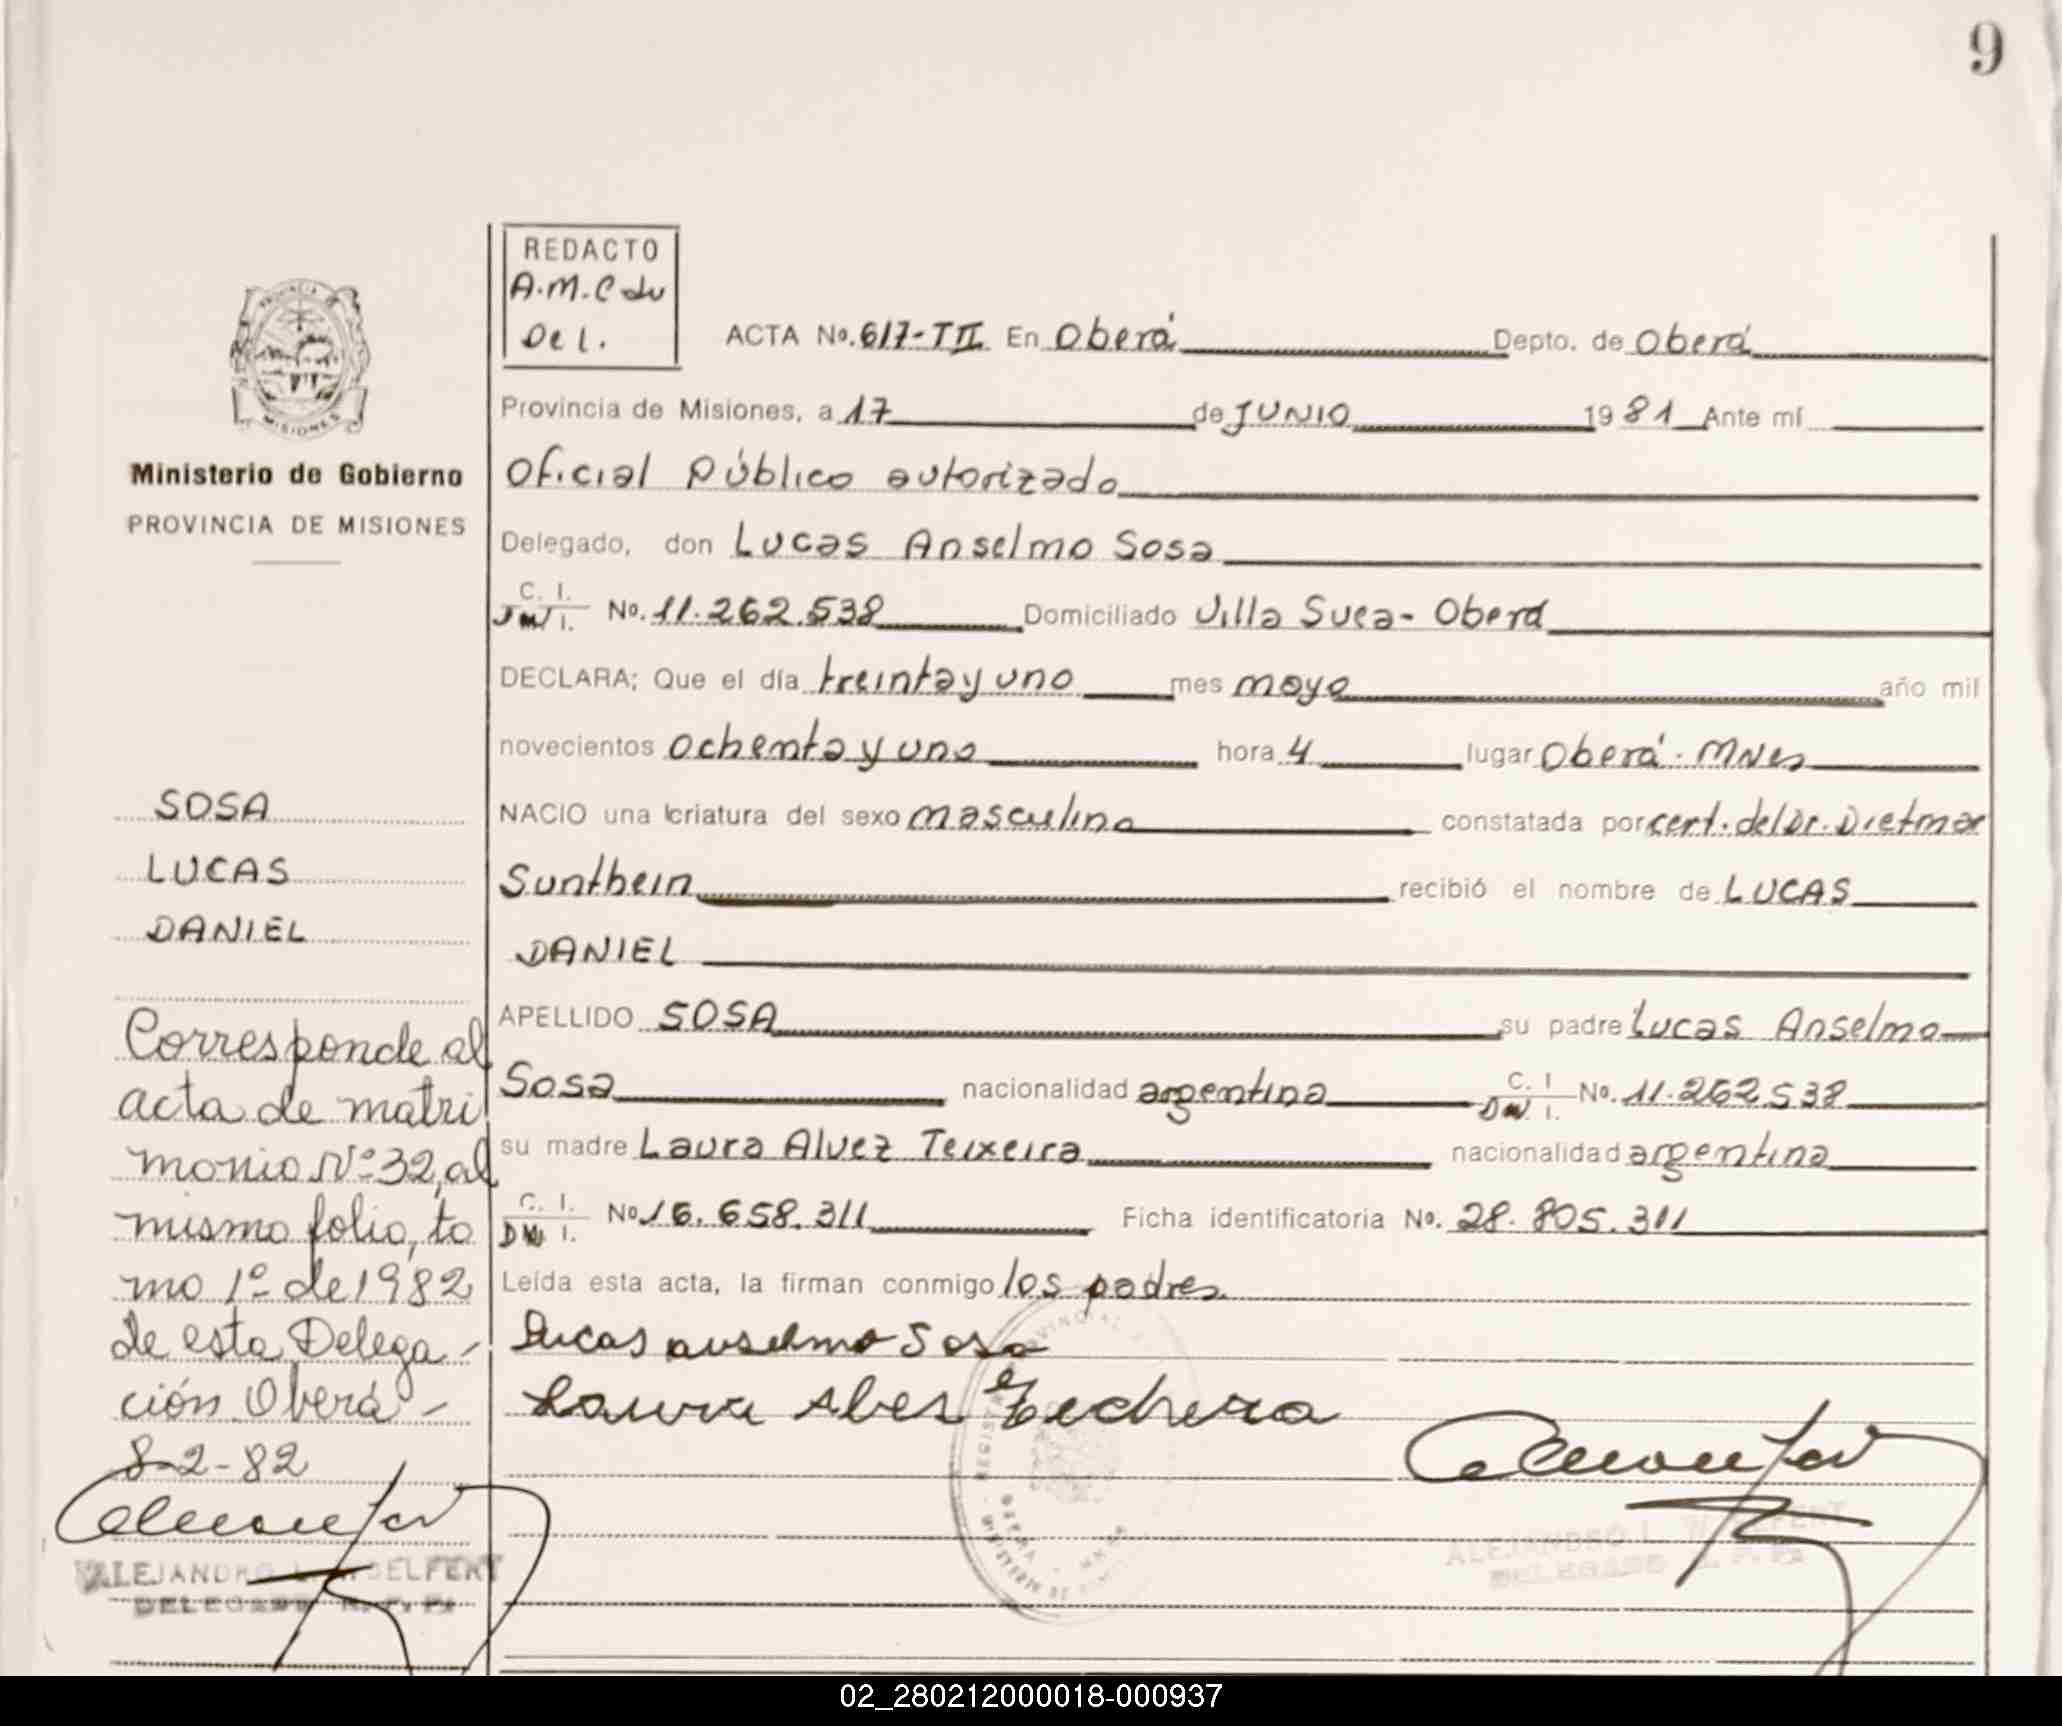 9
REDACTO
A.M.C du
Del.
ACTA No. 617-TII En Oberá Depto. de Oberá
Provincia de Misiones, a 17 de JUNIO 1981 Ante mí
Oficial Público autorizado
Delegado, don Lucas Anselmo Sosa
C. I.
D.N.I. No. 11.262.538 Domiciliado Villa Suea - Oberá
DECLARA; Que el día treinta y uno mes mayo año mil
novecientos ochenta y uno hora 4 lugar Oberá - Mnes
NACIO una criatura del sexo masculino constatada por cert. del Dr. Dietmar
Suntbein recibió el nombre de LUCAS
DANIEL
APELLIDO SOSA su padre Lucas Anselmo
Sosa nacionalidad argentina C. I. D.N.I. No. 11.262.538
su madre Laura Alvez Teixeira nacionalidad argentina
C. I.
D.N.I. No. 16.658.311 Ficha identificatoria No. 28.805.311
Leída esta acta, la firman conmigo los padres.
Lucas anselmo Sosa
Laura Albes Techera
ALEJANDRO L. W. BELFENT
DELEGADO R. P. P.
PROVINCIA DE MISIONES
Ministerio de Gobierno
PROVINCIA DE MISIONES
SOSA
LUCAS
DANIEL
Corresponde al
acta de matri
monio Nº 32, al
mismo folio, to
mo 1º de 1982
de esta Delega-
ción Oberá-
8-2-82
ALEJANDRO L. W. BELFENT
DELEGADO R. P. P.
02_280212000018-000937